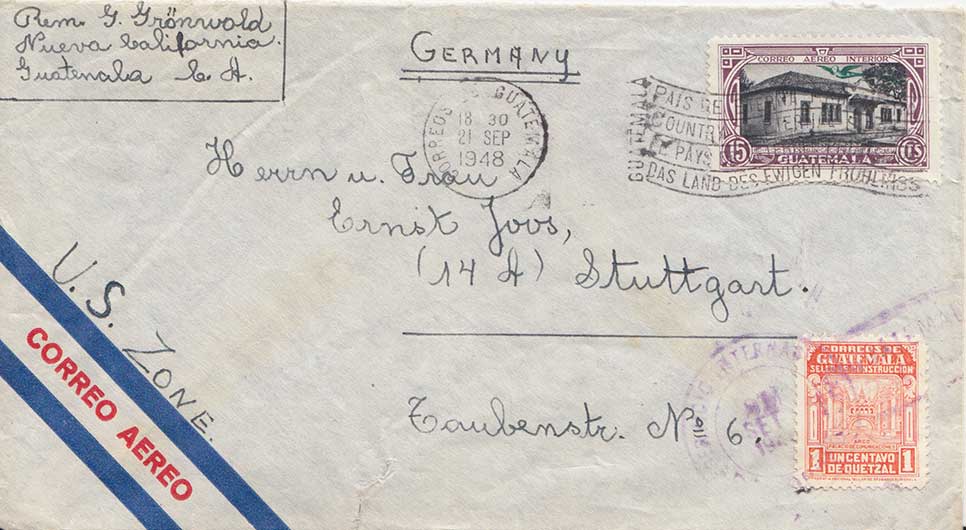 Rem. G. Grönwold
Nueva California.
Guatemala C. A.
GERMANY
CORREOS GUATEMALA
18 30
21 SEP
1948
GUATEMALA
PAIS DE
COUNTRY
PAYS
DAS LAND DES EWIGEN FRÜHLINGS
CORREO AEREO INTERIOR
15 CTS
GUATEMALA
Herrn u. Frau
Ernst Joos,
(14 A) Stuttgart.
Taubenstr. No 6.
U. S. ZONE.
CORREO AEREO
CORREOS DE
GUATEMALA
SELLO DE CONSTRUCCION
ARCO
PALACIO DE COMUNICACIONES
1 UN CENTAVO 1
DE QUETZAL